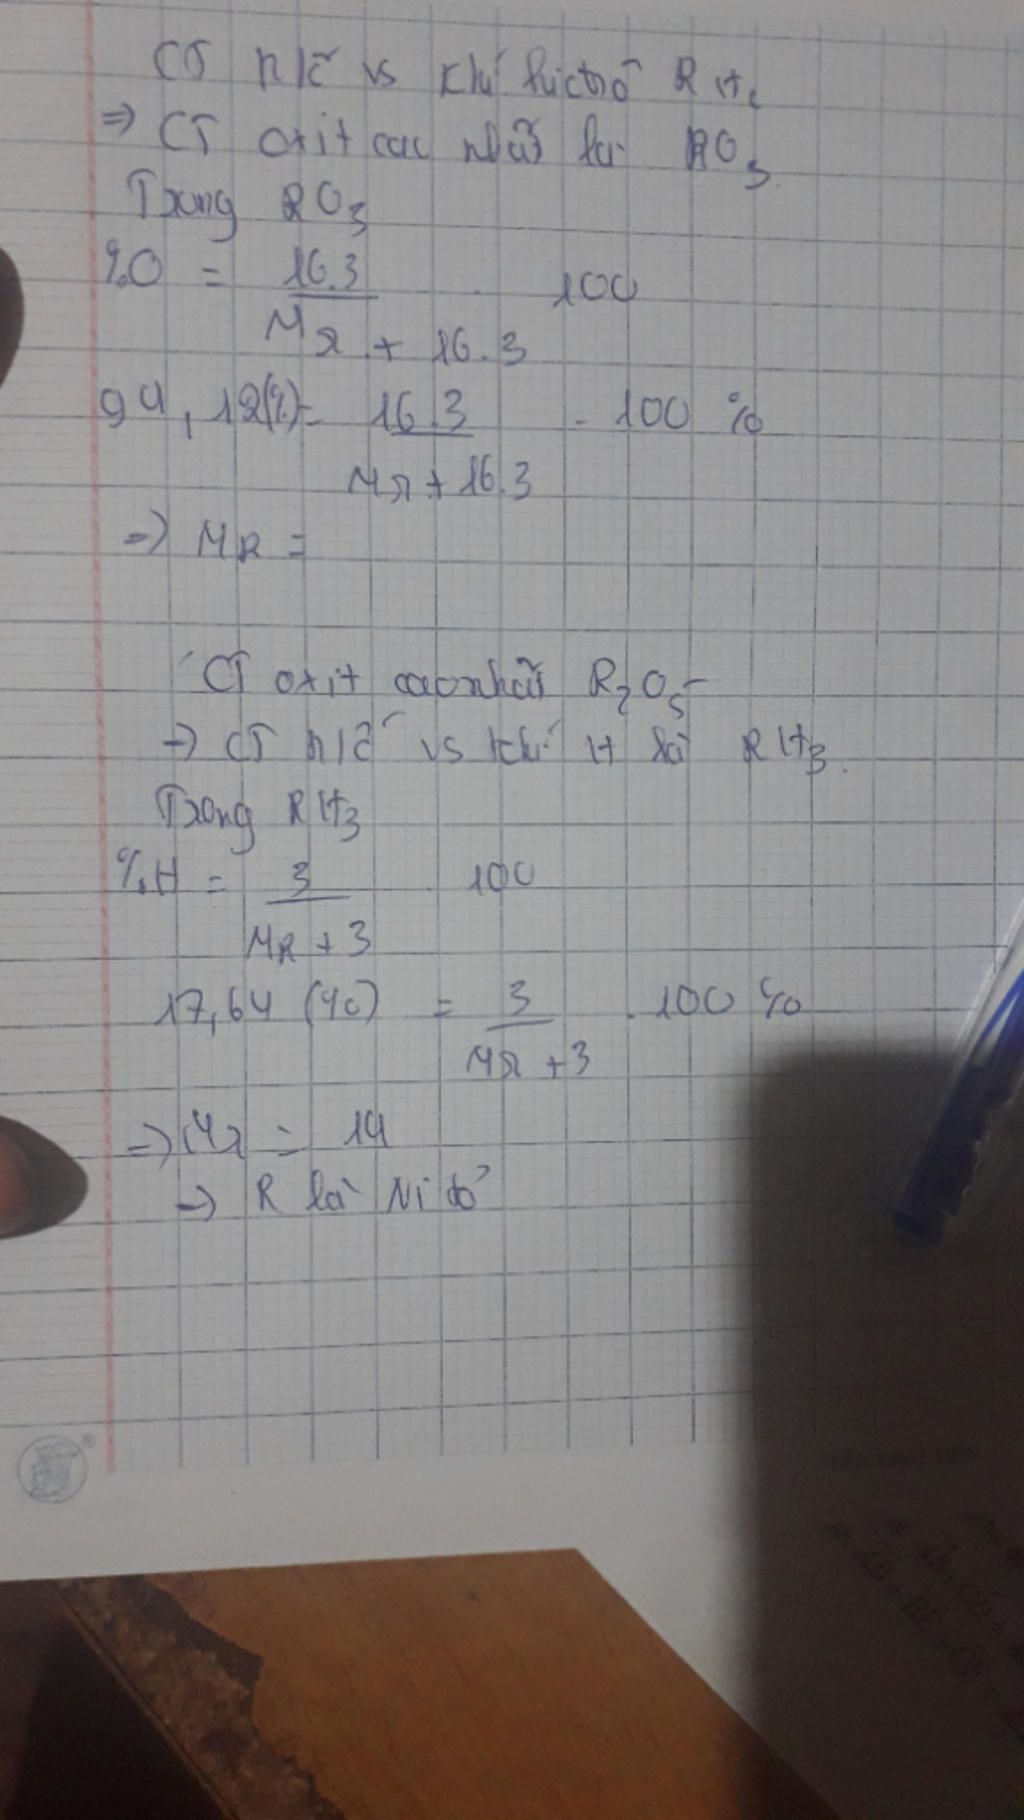 CT h/c vs khí hiđrô RH₂
⇒ CT oxit cao nhất là RO₃
Trong RO₃
%O = 16.3 / MR + 16.3 . 100
94,12(%) = 16.3 / MR + 16.3 . 100 %
⇒ MR =
CT oxit cao nhất R₂O₅
→ CT h/c vs khí H là RH₃.
Trong RH₃
%H = 3 / MR + 3 . 100
17,64 (%) = 3 / MR + 3 . 100 %
⇒ MR = 14
→ R là Nitơ